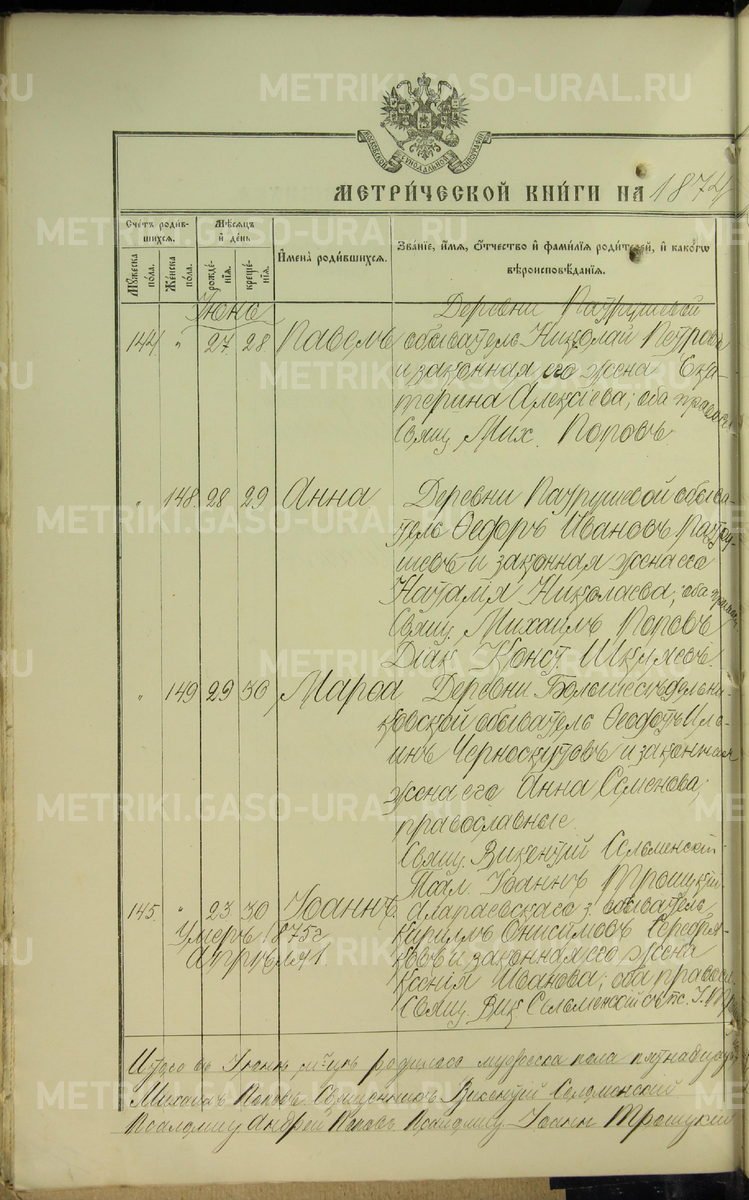 METRIKI.GASO-URAL.RU
МЕТРИ́ЧЕСКОЙ КНИ́ГИ НА 1874
Сче́тъ роди́в-
шихся.
Мѣ́сяцъ
и҆ де́нь
И҆мена̀ роди́вшихся.
Зва́нїе, и҆́мя, ѻ҆́тчество и҆ фами́лїя роди́телей, и҆ како́гѡ
вѣроисповѣ́данїя.
Мꙋ́жеска
пола.
Же́нска
пола.
рожде́-
нїя.
креще́-
нїя.
Іюнь
144 " 27 28 Павелъ
Деревни Патрушевой
обыватель Николай Петровъ
и законная его жена Ека-
терина Алексіева; оба правосл.
Свящ. Мих. Поповъ
" 148 28 29 Анна
Деревни Патрушевой обыва-
тель Ѳеодоръ Ивановъ Патру-
шевъ и законная жена его
Наталія Николаева; оба правосл.
Свящ. Михаилъ Поповъ
Діак. Конст. Шкляевъ.
" 149 29 30 Марѳа
Деревни Большеседельни-
ковской обыватель Ѳеодотъ Иль-
инъ Черноскутовъ и законная
жена его Анна Семенова;
православные.
Свящ. Викентій Сельменскій
Псал. Іоаннъ Троицкій.
145. " 23 30 Іоаннъ.
Умеръ 1875 г
Апрѣля 1
Аларaевскаго з. обыватель
Кириллъ Онисимовъ Серебря-
ковъ и законная его жена
Ксенія Иванова; оба правосл.
Свящ. Вик. Сельменскій съ пс. І. Тр
Итого въ Іюнѣ м-цѣ родилось мужеска пола пятнадцать
Михаилъ Поповъ Священникъ Викентій Сельменскій
Псаломщ. Андрей Поповъ Псаломщ. Іоаннъ Троицкій